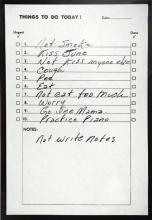 THINGS TO DO TODAY!
Date
Urgent Done
1. Not Smoke
2. Kiss June
3. Not Kiss anyone else
4. Cough
5. Pee
6. Eat
7. Not eat too much
8. Worry
9. Go see Mama
10. Practice Piano
NOTES:
Not Write Notes